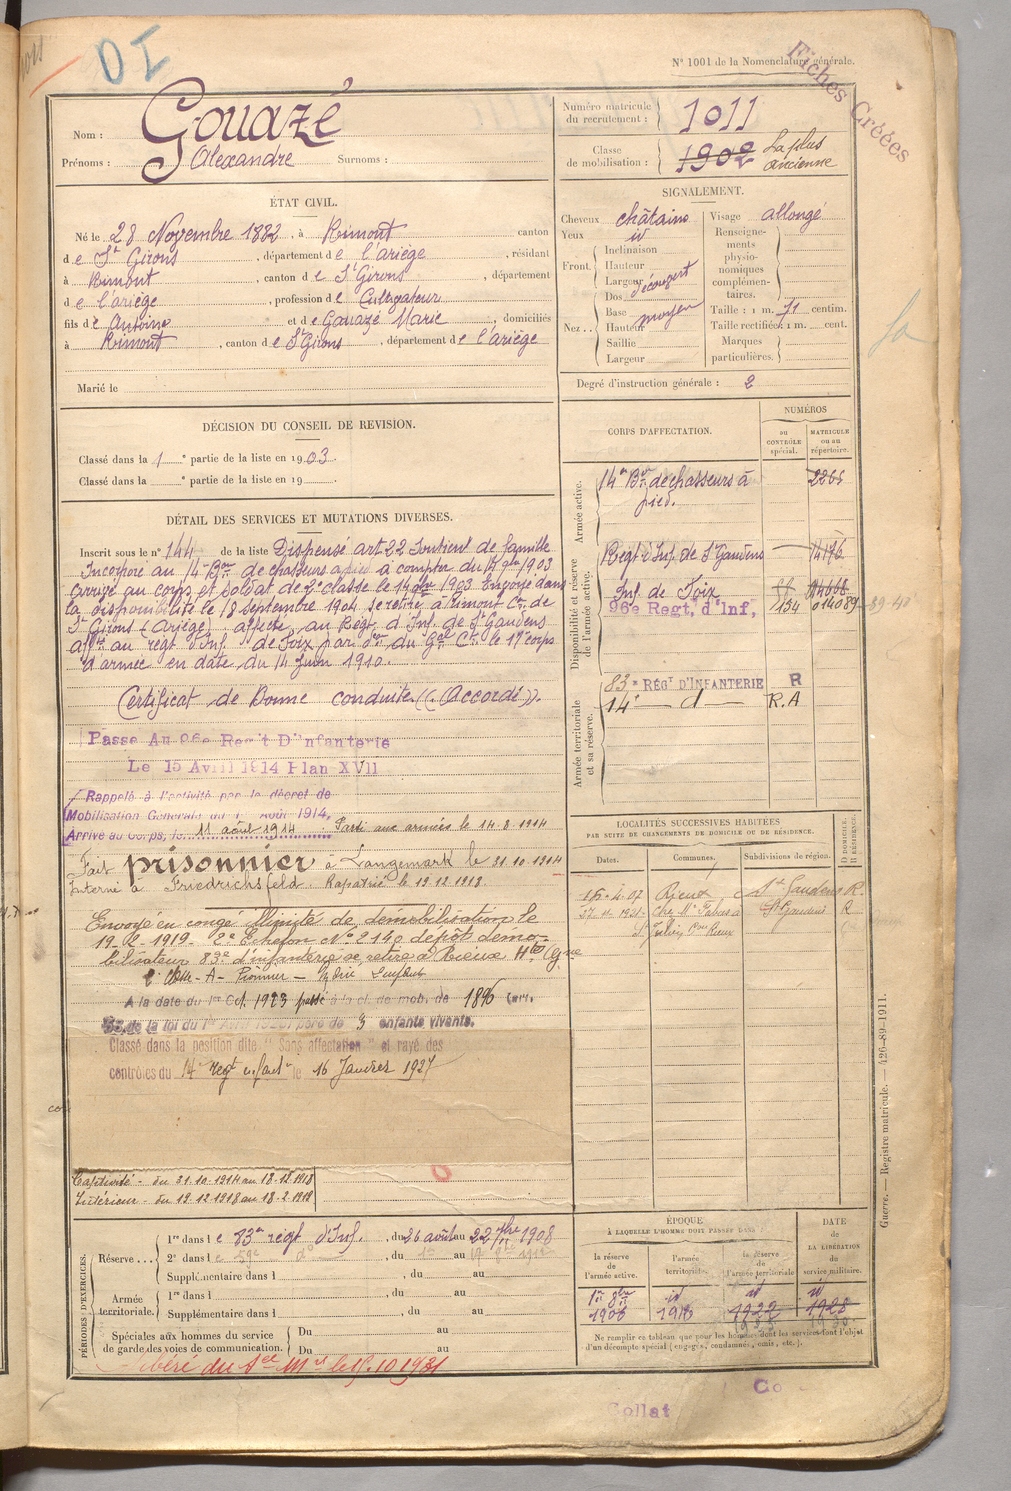 D I
N° 1001 de la Nomenclature générale.
Fiches Créées
Nom : Gouazé
Prénoms : Alexandre Surnoms :
Numéro matricule du recrutement : 1011
Classe de mobilisation : 1902 La plus ancienne
ÉTAT CIVIL.
Né le 28 Novembre 1882, à Rimont canton
de St Girons, département de l'ariège, résidant
à Rimont, canton de St Girons, département
de l'ariège, profession de Cultivateur
fils de Antoine et de Gouazé Marie, domiciliés
à Rimont, canton de St Girons, département de l'ariège
Marié le
SIGNALEMENT.
Cheveux châtains
Yeux id
Front Inclinaison
Hauteur
Largeur découvert
Nez Dos
Base moyen
Hauteur
Saillie
Largeur
Visage allongé
Renseignements physionomiques complémentaires.
Taille : 1 m. 71 centim.
Taille rectifiée : 1 m. cent.
Marques particulières.
Degré d'instruction générale : 2
DÉCISION DU CONSEIL DE REVISION.
Classé dans la 1e partie de la liste en 1903.
Classé dans la e partie de la liste en 19
DÉTAIL DES SERVICES ET MUTATIONS DIVERSES.
Inscrit sous le n° 144 de la liste Dispensé art 22 Soutient de famille
Incorporé au 14e Bon de chasseurs à pied à compter du 14 9bre 1903
arrivé au corps et soldat de 2e classe le 14 9bre 1903 Envoyé dans
la disponibilité le 18 Septembre 1904 se retire à Rimont Cton de
St Girons (Ariège) affecté au Régt d'Inf. de St Gaudens
affté au régt d'Inf. de Foix par Don du Gal Ct le 17e corps
d'armée en date du 14 Juin 1910.
Certificat de Bonne conduite "(Accordé)".
Passe Au 96e Regit D'Infanterie
Le 15 Avril 1914 Plan XVII
Rappelé à l'activité par le décret de
Mobilisation Générale du 1er Août 1914,
Arrivé au Corps, le 11 août 1914. Parti aux armées le 14-8-1914
Fait prisonnier à Langemark le 31.10.1914
Interné à Friedrichsfeld. Rapatrié le 19 12 1918
Envoyé en congé illimité de démobilisation le
19-2-1919. 2e Echelon N° 2140 dépôt démo-
bilisateur 83e d'infanterie se retire à Rieux Hte Gne
A la date du 1er Oct. 1923 passé à la cl. de mob. de 1896 (art.
58 de la loi du 1er Avril 1923) père de 3 enfants vivants.
Classé dans la position dite "Sans affectation" et rayé des
contrôles du 14e regt infant le 16 Janvier 1927
Captivité - du 31.10.1914 au 18.12.1918
Intérieur - du 19.12.1918 au 18.2.1919
CORPS D'AFFECTATION.
NUMÉROS
au CONTRÔLE spécial.
MATRICULE ou au RÉPERTOIRE.
Armée active.
14e Bon de chasseurs à pied. 2265
Disponibilité et réserve de l'armée active.
Régt d'Inf. de St Gaudens 14196
Inf. de Foix
96e Regt. d'Inf, 134 014089
Armée territoriale et sa réserve.
83e RÉGT D'INFANTERIE R
14e — d — R.A
LOCALITÉS SUCCESSIVES HABITÉES
PAR SUITE DE CHANGEMENTS DE DOMICILE OU DE RÉSIDENCE.
Dates. Communes. Subdivisions de région. D DOMICILE. R RÉSIDENCE.
Rieux St Gaudens R.
St Gaudens R
PÉRIODES D'EXERCICES.
Réserve... 1re dans le 83e régt d'Inf., du 26 août au 22 7bre 1908
2e dans le 59e do du au
Supplémentaire dans l , du au
Armée territoriale. 1re dans l , du au
Supplémentaire dans l , du au
Spéciales aux hommes du service de garde des voies de communication. Du au
Du au
Libéré du Sce Mre le 15.10.1931
ÉPOQUE
À LAQUELLE L'HOMME DOIT PASSER DANS :
la réserve de l'armée active. l'armée territoriale. la réserve de l'armée territoriale
DATE de LA LIBÉRATION du service militaire.
1er 8bre 1906 id 1916 id 1922 id 1928
Ne remplir ce tableau que pour les hommes dont les services font l'objet
d'un décompte spécial (engagés, condamnés, omis, etc.).
Guerre. — Registre matricule. — 426-89-1911.
Collat